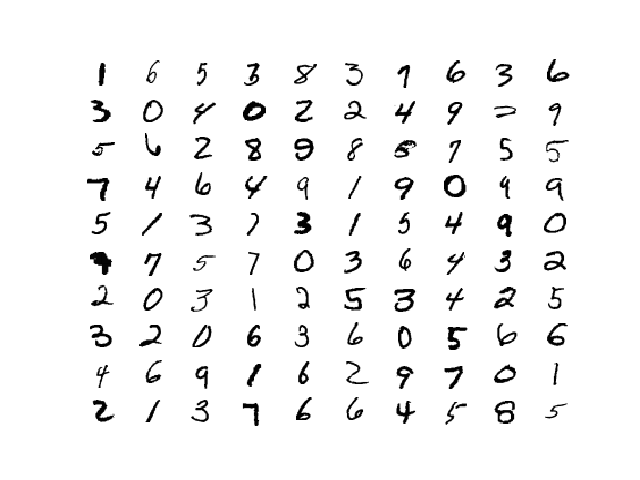 1 6 5 3 8 3 1 6 3 6
3 0 4 0 2 2 4 9 2 9
5 6 2 8 9 8 5 7 5 5
7 4 6 4 9 1 9 0 9 9
5 1 3 7 3 1 5 4 9 0
9 7 5 7 0 3 6 4 3 2
2 0 3 1 2 5 3 4 2 5
3 2 0 6 3 6 0 5 6 6
4 6 9 1 6 2 9 7 0 1
2 1 3 7 6 6 4 5 8 5